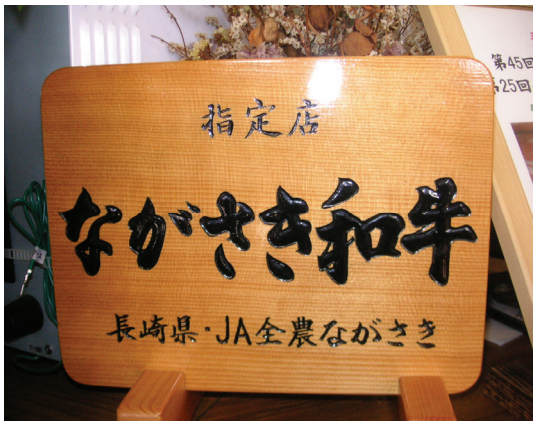 指定店
ながさき和牛
長崎県・JA全農ながさき
第45回
第25回